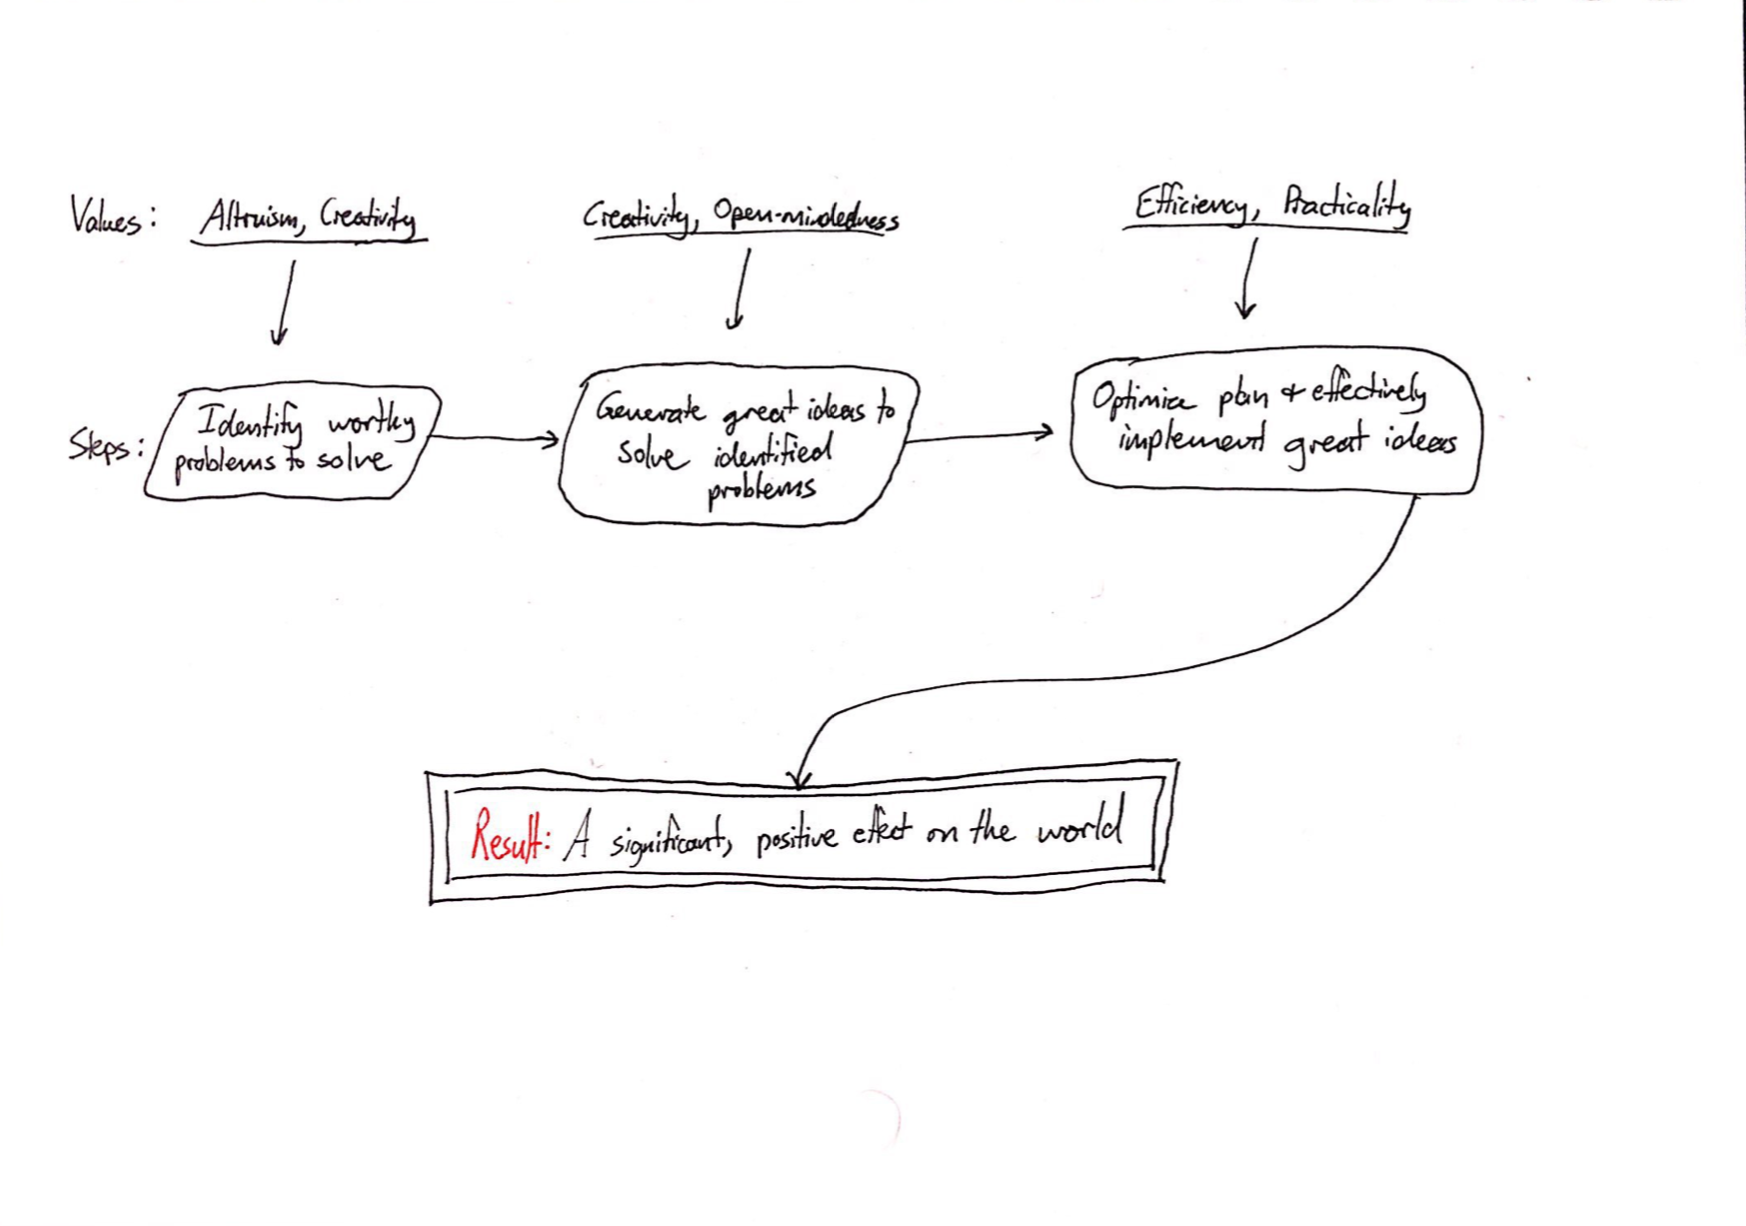 Values: Altruism, Creativity
Creativity, Open-mindedness
Efficiency, Practicality
Steps:
Identify worthy
problems to solve
Generate great ideas to
solve identified
problems
Optimize plan & effectively
implement great ideas
Result: A significant, positive effect on the world